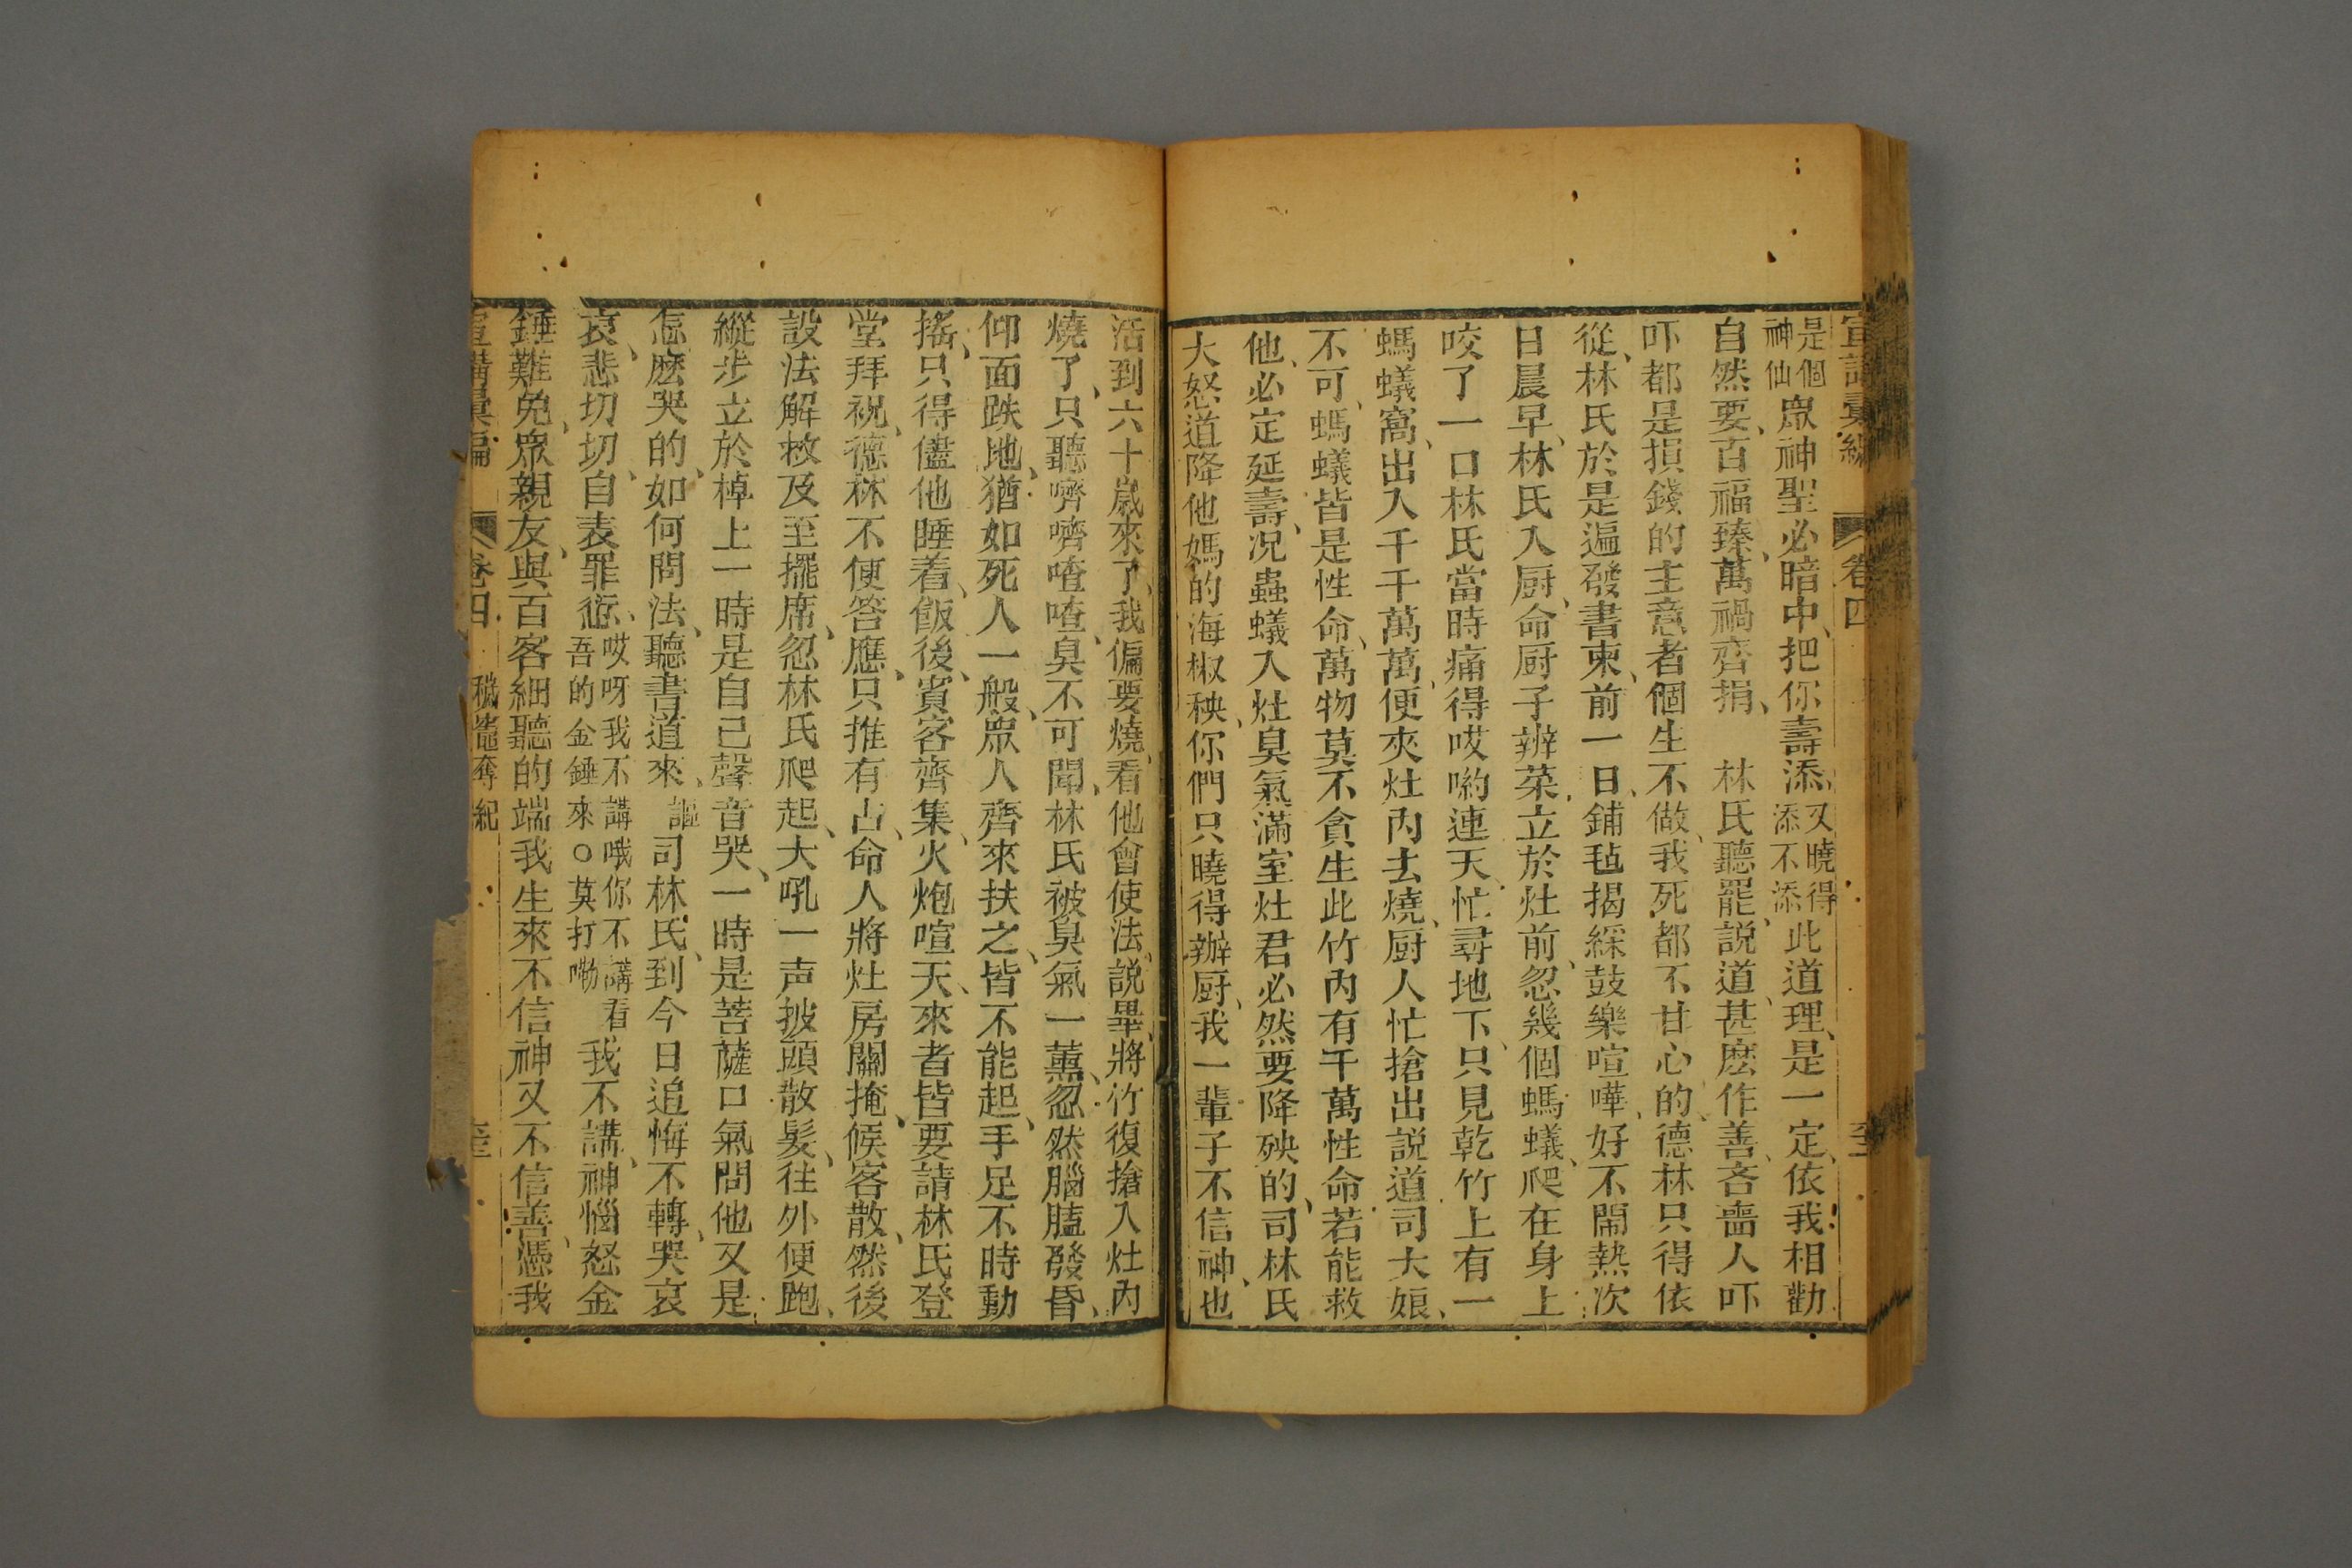 宣講彙編 卷四
是個神仙眾神聖必暗中、把你壽添、又曉得添不添此道理、是一定、依我相勸
自然要、百福臻、萬禍齊捐、 林氏聽罷、説道、甚麽作善、吝嗇人吓
吓都是損錢的主意、者個生不做、我死都不甘心的、德林只得依
從、林氏於是遍發書柬、前一日、鋪毡揭綵、鼓樂喧嘩、好不鬧熱、次
日晨早、林氏入厨、命厨子辨菜、立於灶前、忽幾個螞蟻、爬在身上
咬了一口、林氏當時痛得哎喲連天、忙尋地下、只見乾竹上有一
螞蟻窩、出入千千萬萬、便夾灶內去燒、厨人忙搶出説道、司大娘、
不可、螞蟻皆是性命、萬物莫不貪生、此竹內有千萬性命、若能救
他、必定延壽、况蟲蟻入灶、臭氣滿室、灶君必然要降殃的、司林氏
大怒道、降他媽的海椒秧、你們只曉得辦厨、我一輩子不信神、也
活到六十歲來了、我偏要燒、看他會使法、説畢、將竹復搶入灶內
燒了、只聽嚌嚌喳喳、臭不可聞、林氏被臭氣一薰、忽然腦膸發昏、
仰面跌地、猶如死人一般、眾人齊來扶之、皆不能起、手足不時動
搖、只得儘他睡着、飯後、賓客齊集、火炮喧天、來者皆要請林氏登
堂拜祝、德林不便答應、只推有占、命人將灶房關掩、候客散、然後
設法解救、及至擺席、忽林氏爬起、大吼一声、披頭散髮、往外便跑、
縱步立於棹上、一時是自己聲音哭、一時是菩薩口氣問他、又是
怎麽哭的、如何問法、聽書道來、 謳 司林氏、到今日追悔不轉、哭哀
哀、悲切切、自表罪愆、哎呀我不講哦你不講看吾的金錘來○莫打嘞我不講、神惱怒、金
錘難免、眾親友、與百客、細聽的端、我生來、不信神、又不信善、憑我
宣講彙編 卷四 穢竈奪紀